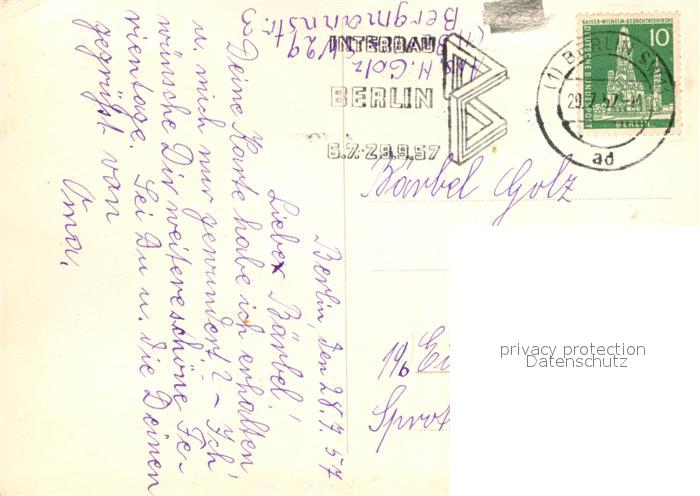 Berlin, den 28.7.57
Lieber Bärbel!
Deine Karte habe ich erhalten
u. mich nur gewundert? – Ich
wünsche Dir weitere schöne Fe-
rientage. Sei Du u. die Deinen
gegrüßt von
Oma.
H. Golz
Bergmannstr.
INTERBAU
BERLIN
6.7.-29.9.57
KAISER-WILHELM-GEDÄCHTNISKIRCHE
10
DEUTSCHE BUNDESPOST
BERLIN
(1) BERLIN
ad
Bärbel Golz
19b
Sprot
privacy protection
Datenschutz